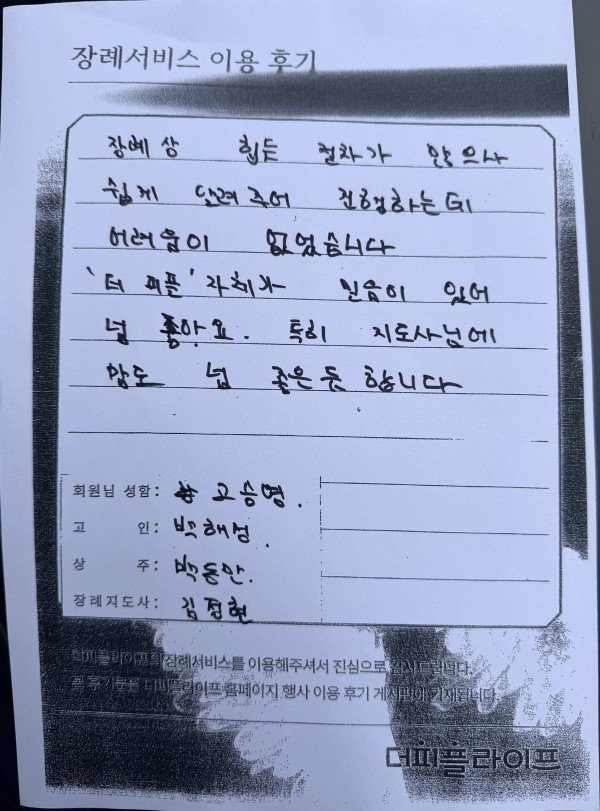 장례서비스 이용 후기
장례 상 힘든 절차가 많으나
쉽게 알려주어 진행하는데
어려움이 없었습니다
'더 피플' 자체가 믿음이 있어
넘 좋아요. 특히 지도사님에
맘도 넘 좋은듯 합니다
회원님 성함: 고승영.
고 인: 박해섬.
상 주: 박동만.
장례지도사: 김정현
더피플라이프의 장례서비스를 이용해주셔서 진심으로 감사드립니다.
본 후기문을 더피플라이프 홈페이지 행사 이용 후기 게시판에 기재됩니다.
더피플라이프